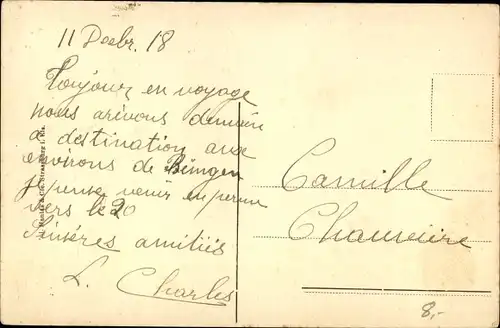 11 Decbr. 18
Toujour en voyage
nous arivons demain
a destination aux
environs de Bingen
je pense venir en perm
vers le 20
Sinsères amitiés
L. Charles
Camille
8,-